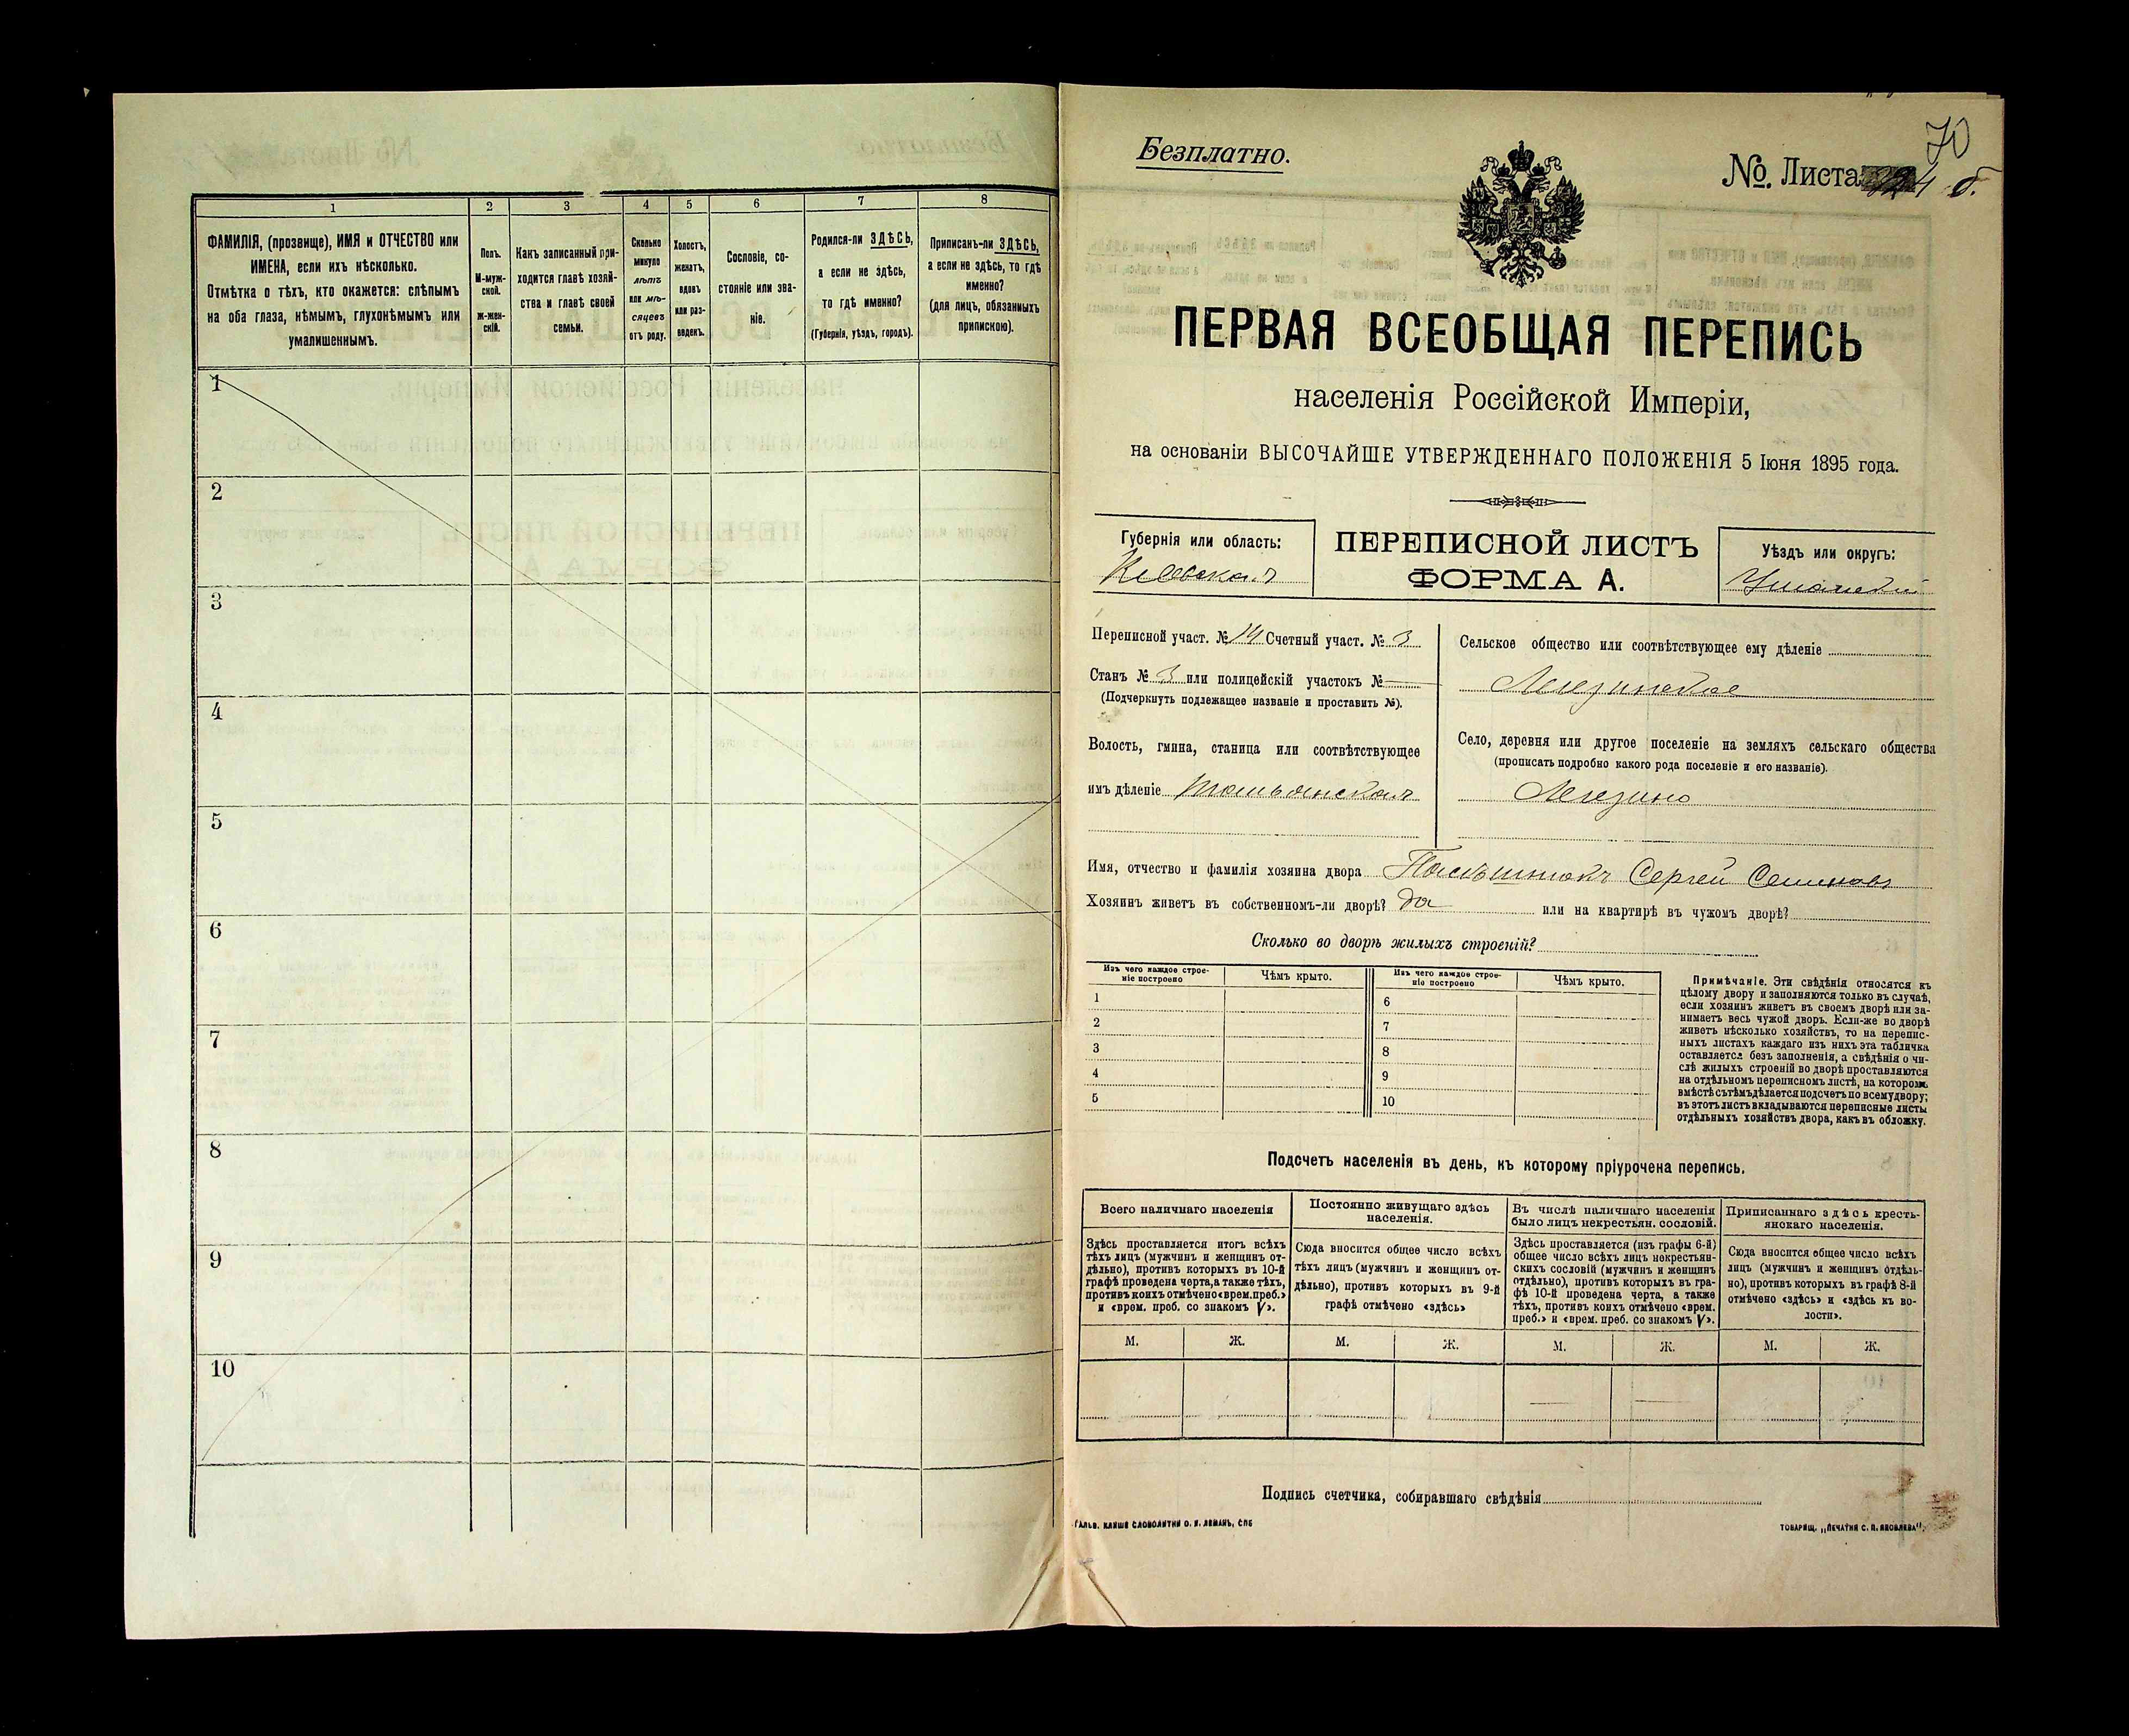 1
2
3
4
5
6
7
8
ФАМИЛІЯ, (прозвище), ИМЯ и ОТЧЕСТВО или
ИМЕНА, если ихъ нѣсколько.
Отмѣтка о тѣхъ, кто окажется: слѣпымъ
на оба глаза, нѣмымъ, глухонѣмымъ или
умалишеннымъ.
Полъ.
М-муж-
ской.
ж-жен-
скій.
Какъ записанный при-
ходится главѣ хозяй-
ства и главѣ своей
семьи.
Сколько
минуло
лѣтъ
или мѣ-
сяцевъ
отъ роду.
Холостъ,
женатъ,
вдовъ
или раз-
веденъ.
Сословіе, со-
стояніе или зва-
ніе.
Родился-ли ЗДѢСЬ,
а если не здѣсь,
то гдѣ именно?
(Губернія, уѣздъ, городъ).
Приписанъ-ли ЗДѢСЬ,
а если не здѣсь, то гдѣ
именно?
(для лицъ, обязанныхъ
припискою).
1
2
3
4
5
6
7
8
9
10
70
Безплатно.
№. Листа 4 б.
ПЕРВАЯ ВСЕОБЩАЯ ПЕРЕПИСЬ
населенія Россійской Имперіи,
на основаніи ВЫСОЧАЙШЕ УТВЕРЖДЕННАГО ПОЛОЖЕНІЯ 5 Іюня 1895 года.
Губернія или область:
Кіевская
ПЕРЕПИСНОЙ ЛИСТЪ
ФОРМА А.
Уѣздъ или округъ:
Уманскій
Переписной участ. № 14 Счетный участ. № 3
Станъ № 3 или полицейскій участокъ № —
(Подчеркнуть подлежащее названіе и проставить №).
Волость, гмина, станица или соотвѣтствующее
имъ дѣленіе Тальянская
Сельское общество или соотвѣтствующее ему дѣленіе
Легезинское
Село, деревня или другое поселеніе на земляхъ сельскаго общества
(прописать подробно какого рода поселеніе и его названіе).
Легезино
Имя, отчество и фамилія хозяина двора Сергей Семиновъ
Хозяинъ живетъ въ собственномъ-ли дворѣ? да или на квартирѣ въ чужомъ дворѣ?
Сколько во дворѣ жилыхъ строеній?
Изъ чего каждое строе-
ніе построено
Чѣмъ крыто.
Изъ чего каждое строе-
ніе построено
Чѣмъ крыто.
1
2
3
4
5
6
7
8
9
10
Примѣчаніе. Эти свѣдѣнія относятся къ
цѣлому двору и заполняются только въ случаѣ,
если хозяинъ живетъ въ своемъ дворѣ или за-
нимаетъ весь чужой дворъ. Если-же во дворѣ
живетъ нѣсколько хозяйствъ, то на перепис-
ныхъ листахъ каждаго изъ нихъ эта табличка
оставляется безъ заполненія, а свѣдѣнія о чи-
слѣ жилыхъ строеній во дворѣ проставляются
на отдѣльномъ переписномъ листѣ, на которомъ
вмѣстѣ съ тѣмъ дѣлается подсчетъ по всему двору;
въ этотъ листъ вкладываются переписные листы
отдѣльныхъ хозяйствъ двора, какъ въ обложку.
Подсчетъ населенія въ день, къ которому пріурочена перепись.
Всего наличнаго населенія
Здѣсь проставляется итогъ всѣхъ
тѣхъ лицъ (мужчинъ и женщинъ от-
дѣльно), противъ которыхъ въ 10-й
графѣ проведена черта, а также тѣхъ,
противъ коихъ отмѣчено «врем. преб.»
и «врем. проб. со знакомъ V».
Постоянно живущаго здѣсь
населенія.
Сюда вносится общее число всѣхъ
тѣхъ лицъ (мужчинъ и женщинъ от-
дѣльно), противъ которыхъ въ 9-й
графѣ отмѣчено «здѣсь»
Въ числѣ наличнаго населенія
было лицъ некрестьян. сословій.
Здѣсь проставляется (изъ графы 6-й)
общее число всѣхъ лицъ некрестьян-
скихъ сословій (мужчинъ и женщинъ
отдѣльно), противъ которыхъ въ гра-
фѣ 10-й проведена черта, а также
тѣхъ, противъ коихъ отмѣчено «врем.
преб.» и «врем. преб. со знакомъ V».
Приписаннаго здѣсь кресть-
янскаго населенія.
Сюда вносится общее число всѣхъ
лицъ (мужчинъ и женщинъ отдѣль-
но), противъ которыхъ въ графѣ 8-й
отмѣчено «здѣсь» и «здѣсь къ во-
лости».
М. Ж. М. Ж. М. Ж. М. Ж.
Подпись счетчика, собиравшаго свѣдѣнія
ГАЛЬВ. КЛИШЕ СЛОВОЛИТНИ О. И. ЛЕМАНЪ, СПБ
ТОВАРИЩ. „ПЕЧАТНЯ С. П. ЯКОВЛЕВА".